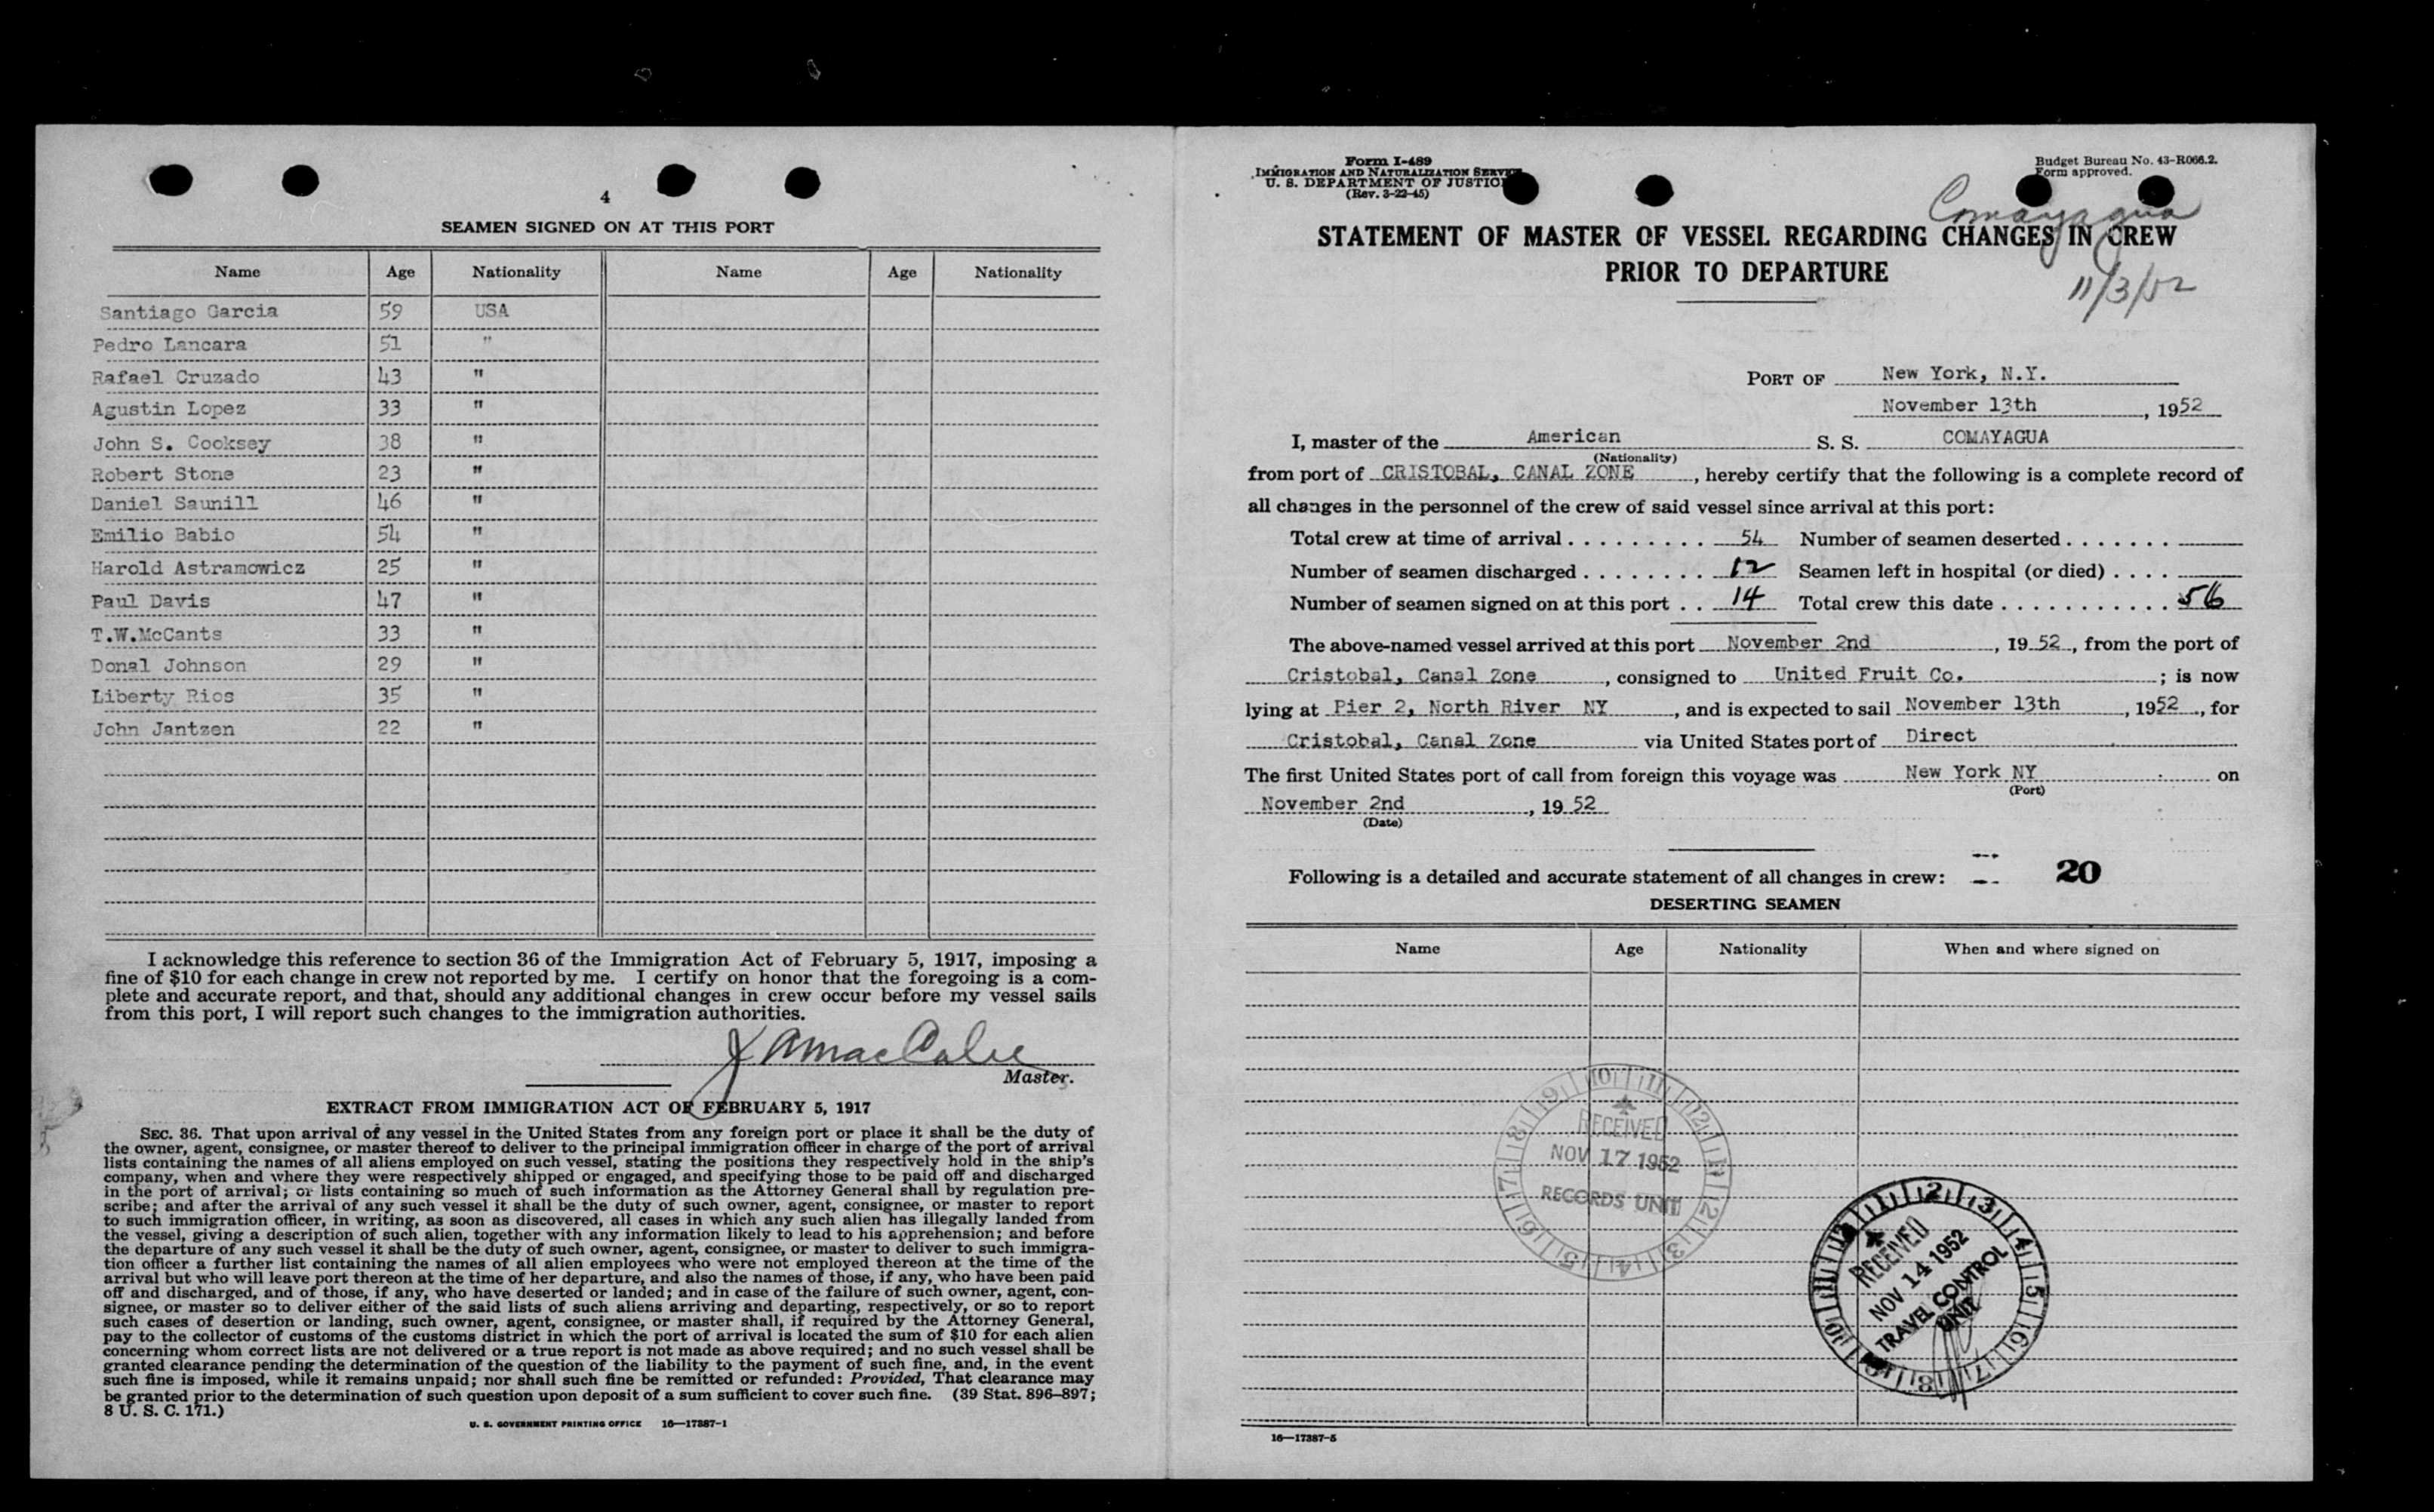 4
SEAMEN SIGNED ON AT THIS PORT
Name Age Nationality Name Age Nationality
Santiago Garcia 59 USA
Pedro Lancara 51 "
Rafael Cruzado 43 "
Agustin Lopez 33 "
John S. Cooksey 38 "
Robert Stone 23 "
Daniel Saunill 46 "
Emilio Babio 54 "
Harold Astramowicz 25 "
Paul Davis 47 "
T.W.McCants 33 "
Donal Johnson 29 "
Liberty Rios 35 "
John Jantzen 22 "
I acknowledge this reference to section 36 of the Immigration Act of February 5, 1917, imposing a
fine of $10 for each change in crew not reported by me. I certify on honor that the foregoing is a com-
plete and accurate report, and that, should any additional changes in crew occur before my vessel sails
from this port, I will report such changes to the immigration authorities.
Master.
EXTRACT FROM IMMIGRATION ACT OF FEBRUARY 5, 1917
SEC. 36. That upon arrival of any vessel in the United States from any foreign port or place it shall be the duty of
the owner, agent, consignee, or master thereof to deliver to the principal immigration officer in charge of the port of arrival
lists containing the names of all aliens employed on such vessel, stating the positions they respectively hold in the ship's
company, when and where they were respectively shipped or engaged, and specifying those to be paid off and discharged
in the port of arrival; or lists containing so much of such information as the Attorney General shall by regulation pre-
scribe; and after the arrival of any such vessel it shall be the duty of such owner, agent, consignee, or master to report
to such immigration officer, in writing, as soon as discovered, all cases in which any such alien has illegally landed from
the vessel, giving a description of such alien, together with any information likely to lead to his apprehension; and before
the departure of any such vessel it shall be the duty of such owner, agent, consignee, or master to deliver to such immigra-
tion officer a further list containing the names of all alien employees who were not employed thereon at the time of the
arrival but who will leave port thereon at the time of her departure, and also the names of those, if any, who have been paid
off and discharged, and of those, if any, who have deserted or landed; and in case of the failure of such owner, agent, con-
signee, or master so to deliver either of the said lists of such aliens arriving and departing, respectively, or so to report
such cases of desertion or landing, such owner, agent, consignee, or master shall, if required by the Attorney General,
pay to the collector of customs of the customs district in which the port of arrival is located the sum of $10 for each alien
concerning whom correct lists are not delivered or a true report is not made as above required; and no such vessel shall be
granted clearance pending the determination of the question of the liability to the payment of such fine, and, in the event
such fine is imposed, while it remains unpaid; nor shall such fine be remitted or refunded: Provided, That clearance may
be granted prior to the determination of such question upon deposit of a sum sufficient to cover such fine. (39 Stat. 896–897;
8 U. S. C. 171.)
U. S. GOVERNMENT PRINTING OFFICE 16—17387-1
Form I-489
IMMIGRATION AND NATURALIZATION SERVICE
U. S. DEPARTMENT OF JUSTICE
(Rev. 3-22-45)
Budget Bureau No. 43-R066.2.
Form approved.
Comayagua
STATEMENT OF MASTER OF VESSEL REGARDING CHANGES IN CREW
PRIOR TO DEPARTURE
11/3/52
PORT OF New York, N.Y.
November 13th, 1952
I, master of the American S. S. COMAYAGUA
(Nationality)
from port of CRISTOBAL, CANAL ZONE, hereby certify that the following is a complete record of
all changes in the personnel of the crew of said vessel since arrival at this port:
Total crew at time of arrival . . . . . . . . . 54 Number of seamen deserted . . . . . . .
Number of seamen discharged . . . . . . . . 12 Seamen left in hospital (or died) . . . .
Number of seamen signed on at this port . . 14 Total crew this date . . . . . . . . . . . 56
The above-named vessel arrived at this port November 2nd, 19 52, from the port of
Cristobal, Canal Zone, consigned to United Fruit Co. ; is now
lying at Pier 2, North River NY, and is expected to sail November 13th, 1952, for
Cristobal, Canal Zone via United States port of Direct
The first United States port of call from foreign this voyage was New York NY on
(Port)
November 2nd, 19 52
(Date)
Following is a detailed and accurate statement of all changes in crew: 20
DESERTING SEAMEN
Name Age Nationality When and where signed on
RECEIVED
NOV 17 1952
RECORDS UNIT
RECEIVED
NOV 14 1952
TRAVEL CONTROL
UNIT
16—17387-5